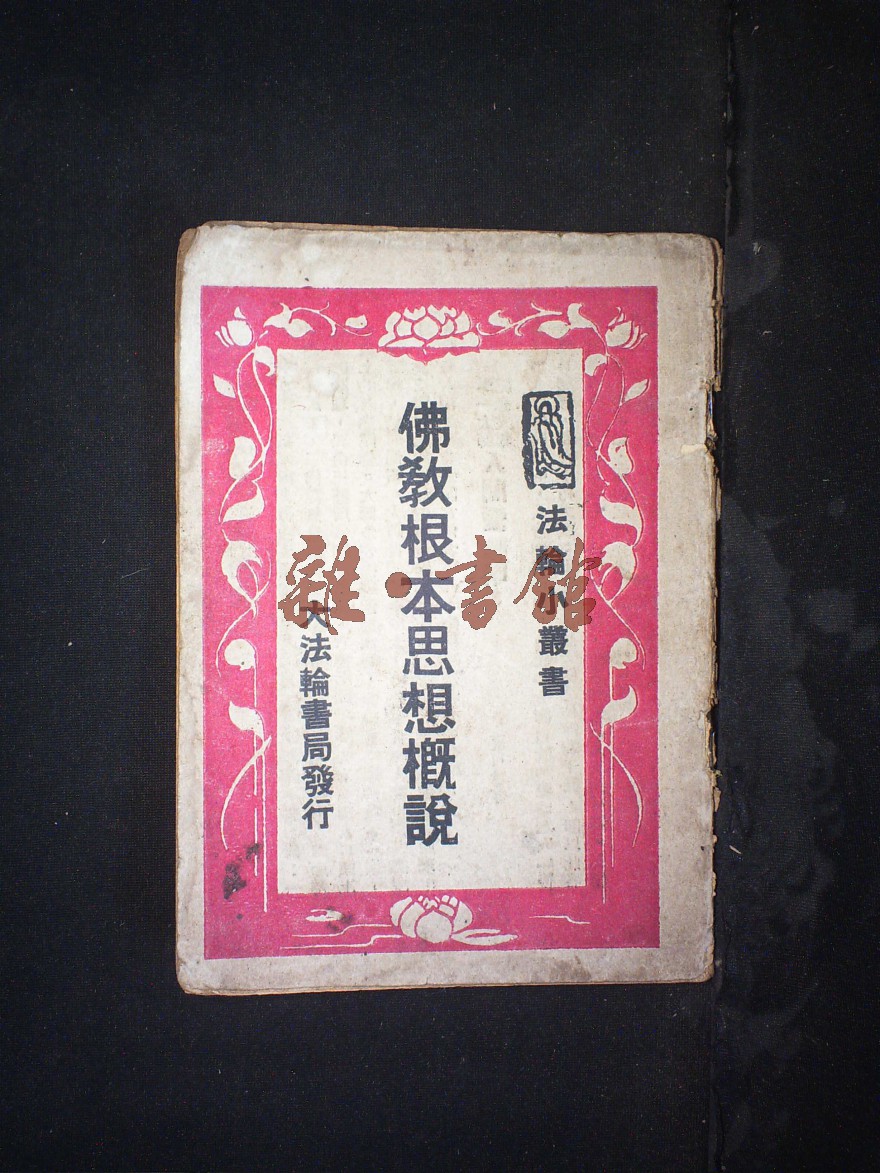 法輪小叢書
佛教根本思想概說
大法輪書局發行
雜·書館